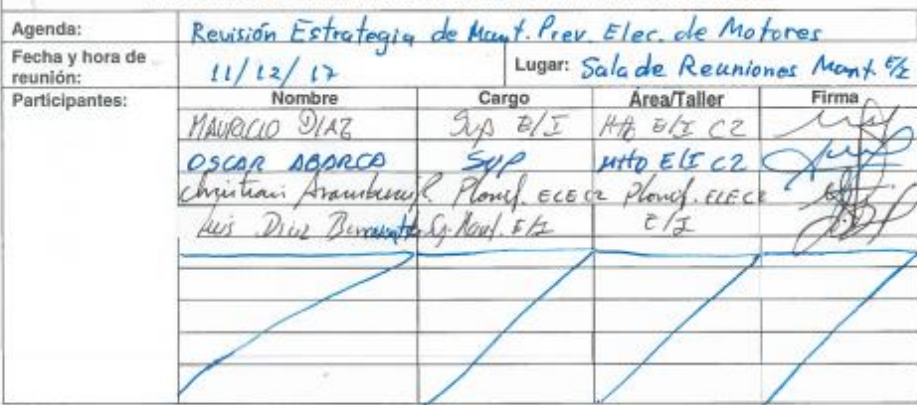 Agenda: Revisión Estrategia de Mant. Prev. Elec. de Motores
Fecha y hora de reunión: 11/12/17 Lugar: Sala de Reuniones Mant. E/I
Participantes: Nombre Cargo Área/Taller Firma
MAURICIO DIAZ Sup E/I E/I C2
OSCAR ABARCA SUP MTTO E/I C2
Christian Planif. ELE C2 Planif. ELE C2
Luis Diaz E/I E/I